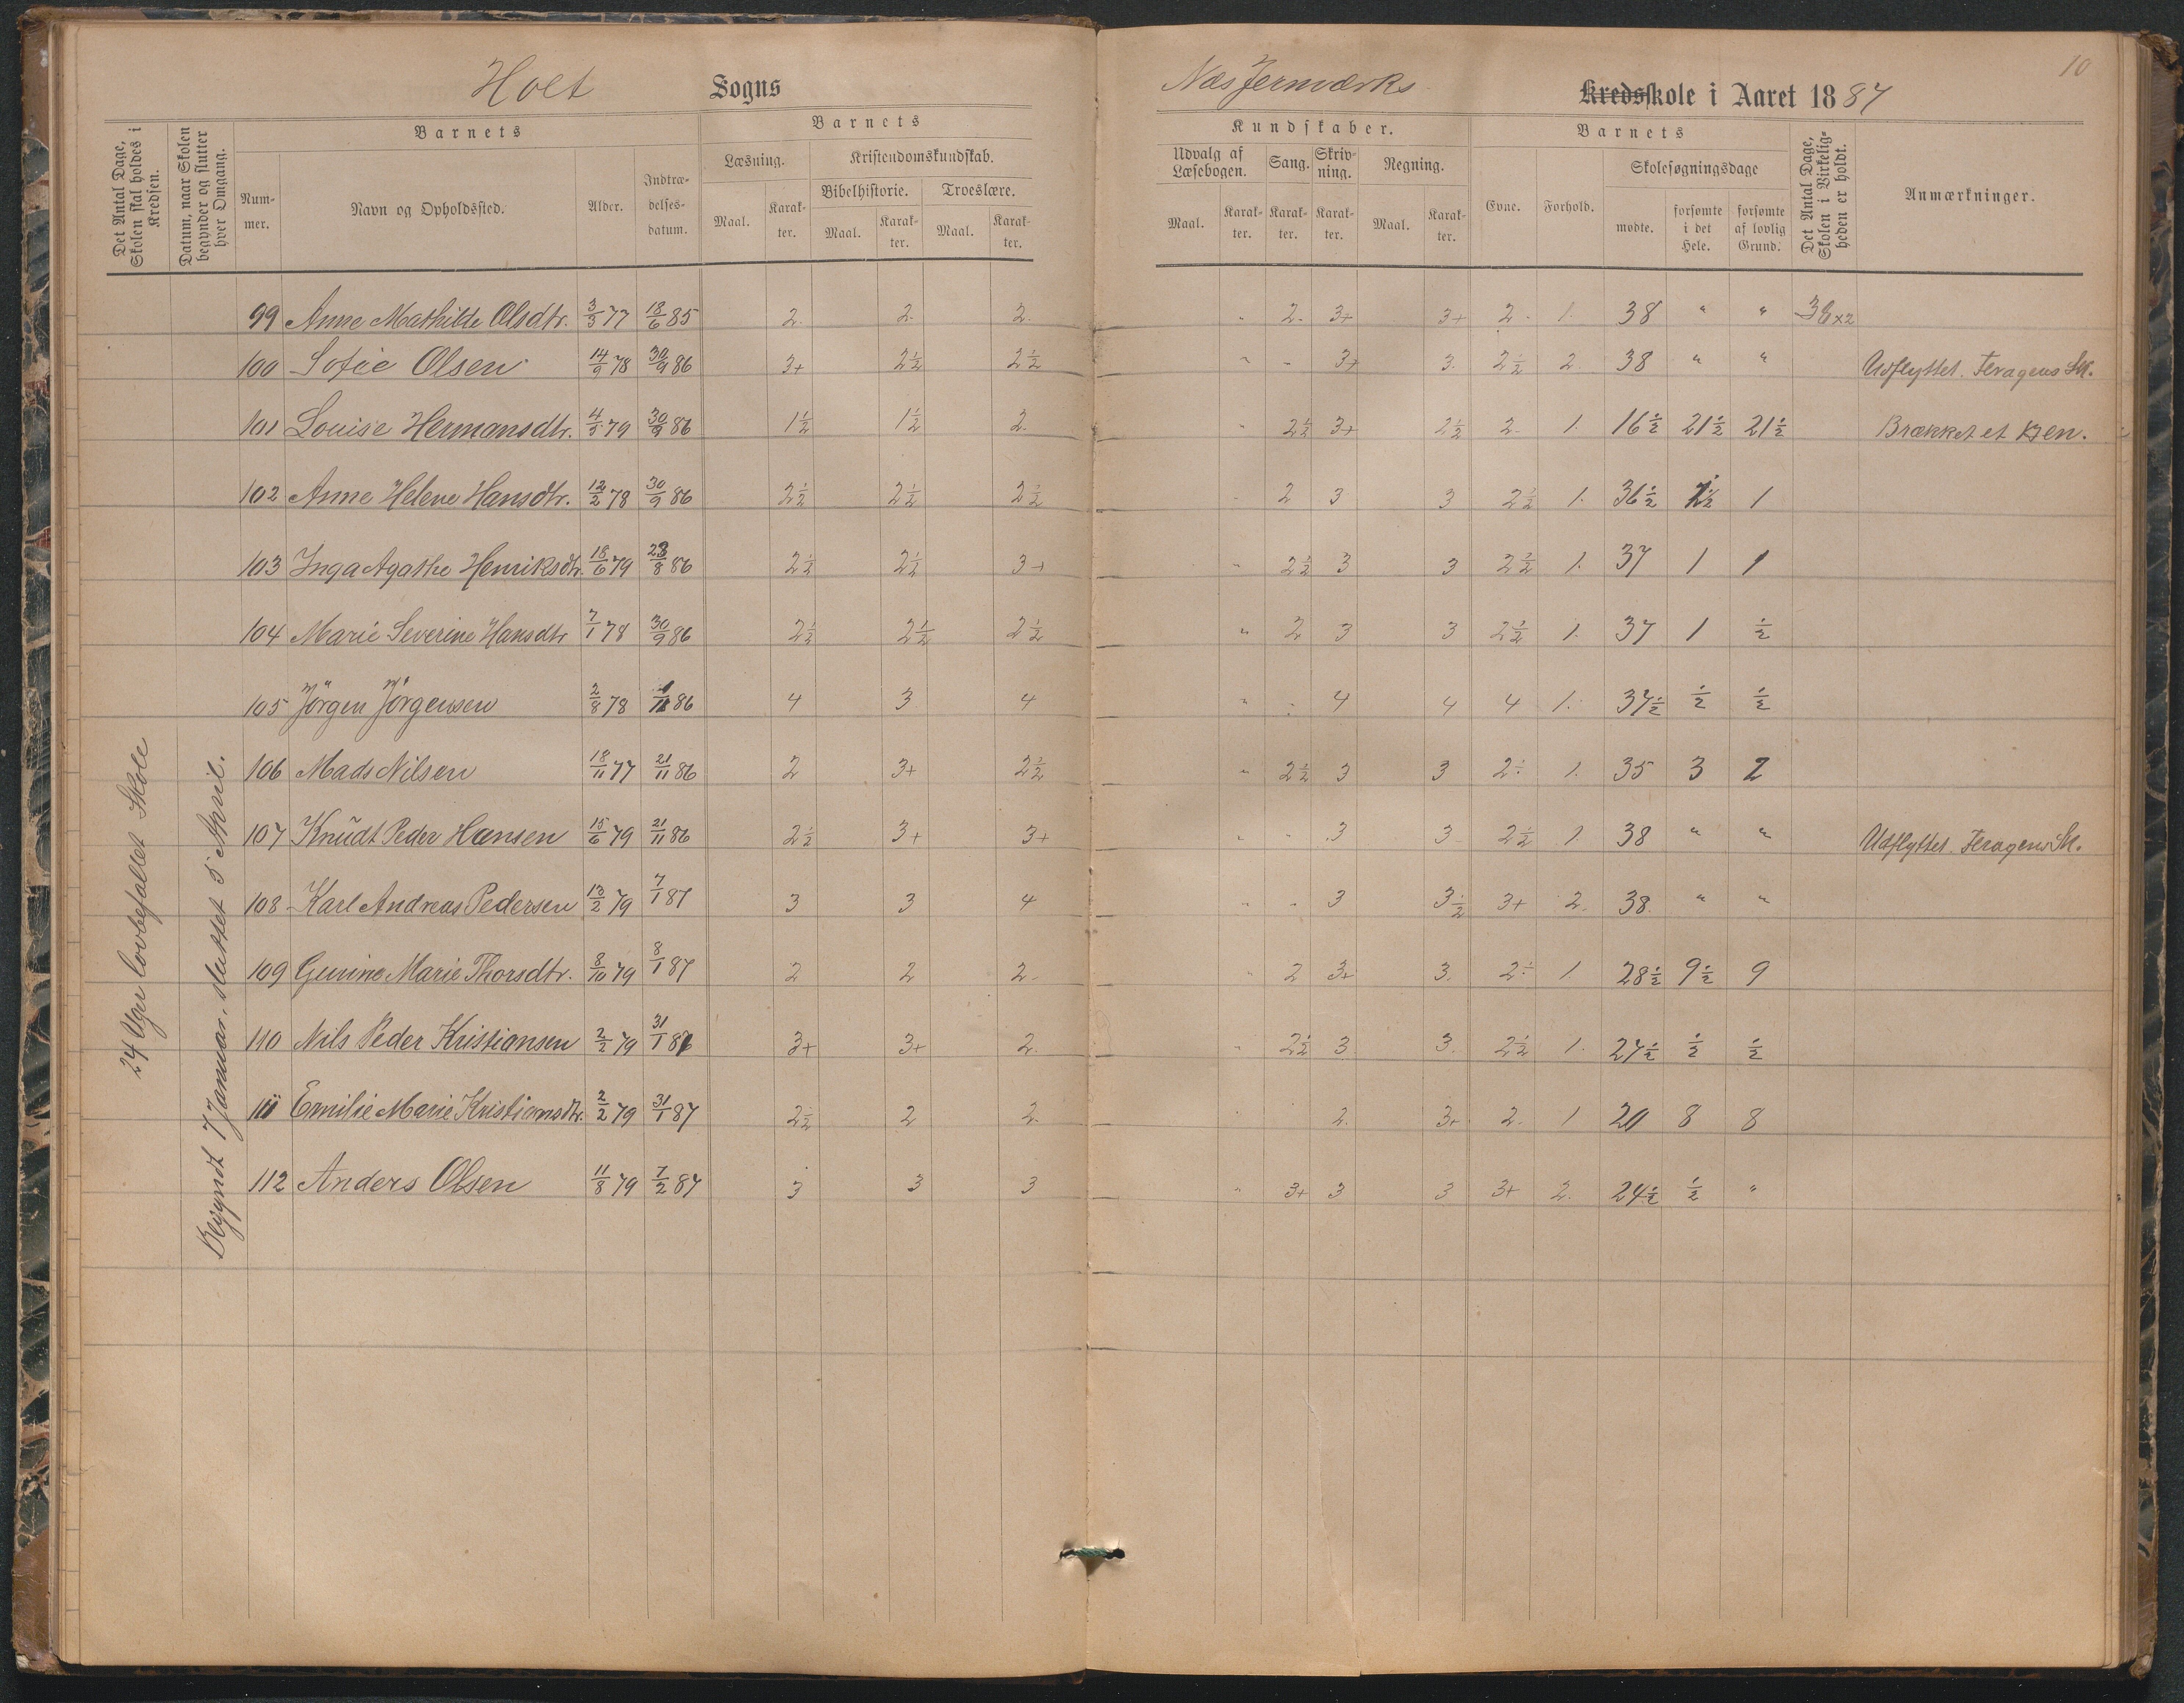 10
Holt Sogns Næs Jernværks Kredsskole i Aaret 1887
Det Antal Dage, Skolen skal holdes i Kredsen.
Datum, naar Skolen begynder og slutter hver Omgang.
Barnets
Nummer.
Navn og Opholdssted.
Alder.
Indtrædelsesdatum.
Barnets
Læsning.
Kristendomskundskab.
Bibelhistorie.
Troeslære.
Maal. Karakter. Maal. Karakter. Maal. Karakter.
Kundskaber.
Udvalg af Læsebogen.
Sang.
Skrivning.
Regning.
Maal. Karakter. Karakter. Karakter. Maal. Karakter.
Barnets
Evne. Forhold.
Skolesøgningsdage
mødte.
forsømte i det Hele.
forsømte af lovlig Grund.
Det Antal Dage, Skolen i Virkeligheden er holdt.
Anmærkninger.
24 Uger lovbefallet Skole
Begyndt 7 Januar, sluttet 5 April.
99 Anne Mathilde Olsdtr. 3/3 77 18/6 85 2. 2. 2. " 2. 3+ 3+ 2. 1. 38 " "
100 Sofie Olsen 14/9 78 30/9 86 3+ 2½ 2½ " - 3+ 3. 2½ 2. 38 " " Udflyttet.
101 Louise Hermansdtr. 4/5 79 30/9 86 1½ 1½ 2. " 2½ 3+ 2½ 2. 1. 16½ 21½ 21½ Brækket et Ben.
102 Anne Helene Hansdtr. 12/2 78 30/9 86 2½ 2½ 2½ " 2 3 3 2½ 1. 36½ 1½ 1
103 Inga Agathe Henriksdtr. 18/6 79 23/8 86 2½ 2½ 3+ " 2½ 3 3 2½ 1. 37 1 1
104 Marie Severine Hansdtr 7/1 78 30/9 86 2½ 2½ 2½ " 2 3 3 2½ 1. 37 1 ½
105 Jörgen Jörgensen 2/8 78 86 4 3 4 " - 4 4 4 1. 37½ ½ ½
106 Mads Nilsen 18/11 77 21/11 86 2 3+ 2½ " 2½ 3 3 2÷ 1. 35 3 2
107 Knudt Peder Hansen 15/6 79 21/11 86 2½ 3+ 3+ " - 3 3 2½ 1. 38 " " Udflyttet.
108 Karl Andreas Pedersen 13/2 79 7/1 87 3 3 4 " - 3 3½ 3+ 2. 38 " "
109 Gunine Marie Thorsdtr. 8/10 79 8/1 87 2 2 2. " 2 3+ 3. 2÷ 1. 28½ 9½ 9
110 Nils Peder Kristiansen 2/2 79 31/1 87 3+ 3+ 2. " 2½ 3 3. 2½ 1. 27½ ½ ½
111 Emilie Marie Kristiansdtr. 2/2 79 31/1 87 2½ 2 2. 2. 3+ 2. 1 20 8 8
112 Anders Olsen 11/8 79 7/2 87 3 3 3 " 3+ 3 3 3+ 2. 24½ ½ "